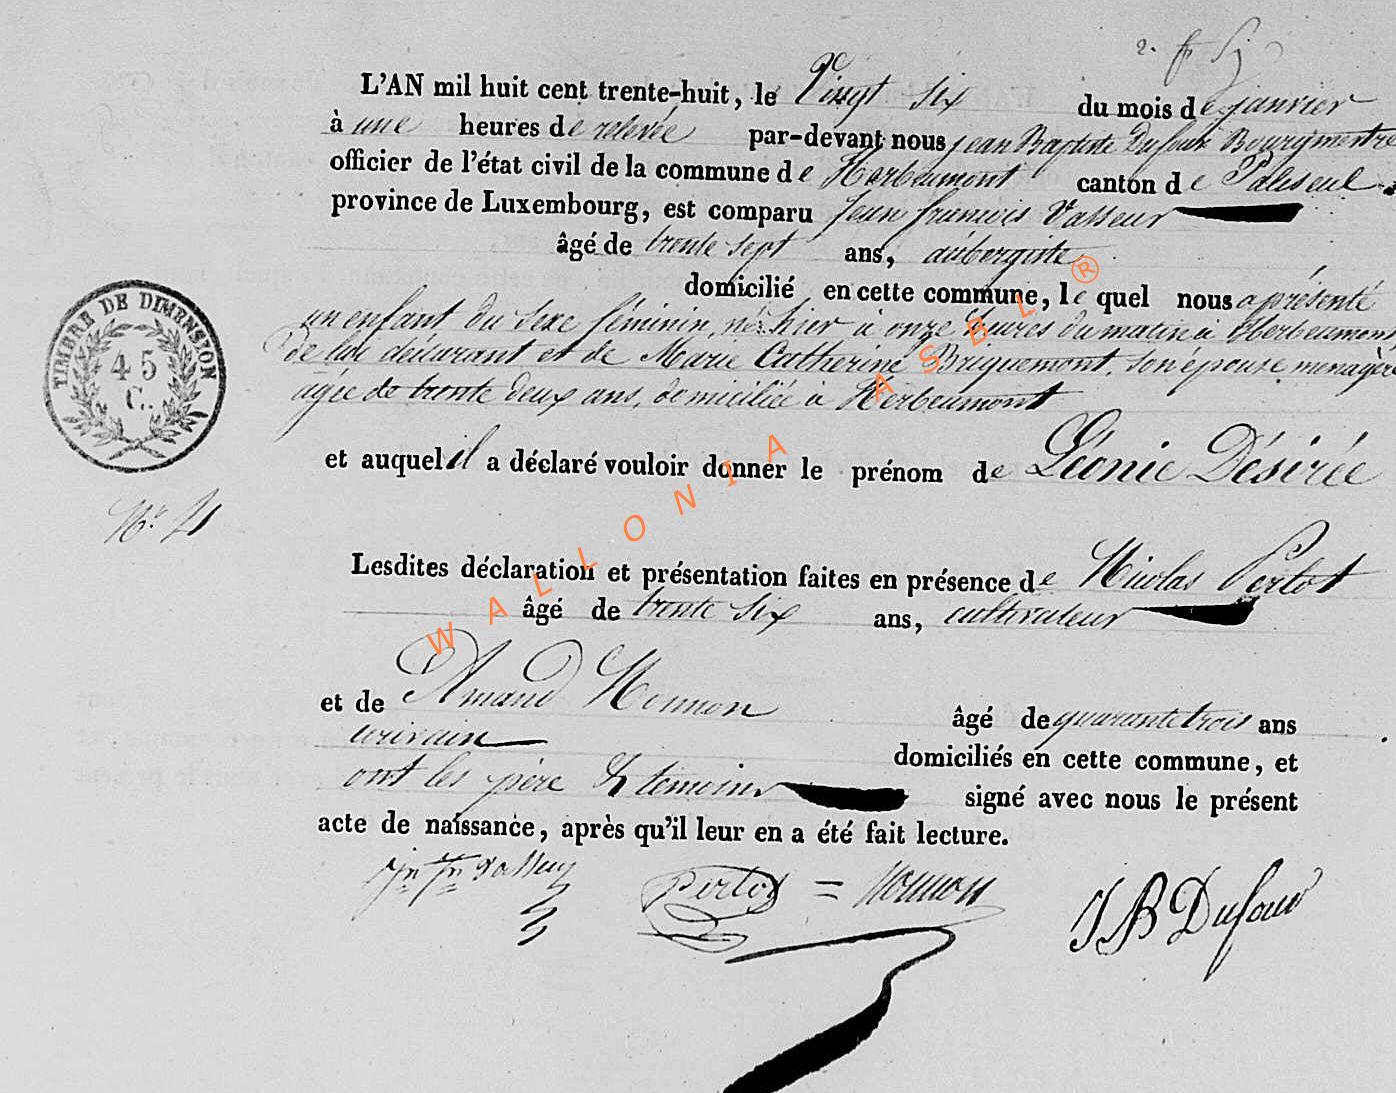 L'AN mil huit cent trente-huit, le Vingt six du mois de janvier
à une heures de relevée par-devant nous jean Baptiste Dufour Bourgmestre
officier de l'état civil de la commune de Herbeumont canton de Paliseul
province de Luxembourg, est comparu Jean françois Vasseur
âgé de trente sept ans, aubergiste
domicilié en cette commune, le quel nous a présenté
un enfant du sexe féminin, né hier à onze heures du matin à Herbeumont,
de lui déclarant et de Marie Catherine Briquemont, son épouse menagère
agée de trente deux ans, domiciliée à Herbeumont
et auquel il a déclaré vouloir donner le prénom de Léonie Désirée
Lesdites déclaration et présentation faites en présence de Nicolas Pertot
âgé de trente six ans, cultivateur
et de Amand Monmon âgé de quarante trois ans
écrivain
domiciliés en cette commune, et
ont les père & temoins signé avec nous le présent
acte de naissance, après qu'il leur en a été fait lecture.
Jn fn Vasseur Pertot = Monmon J B Dufour
TIMBRE DE DIMENSION
45
C.
WALLONIA ASBL ®